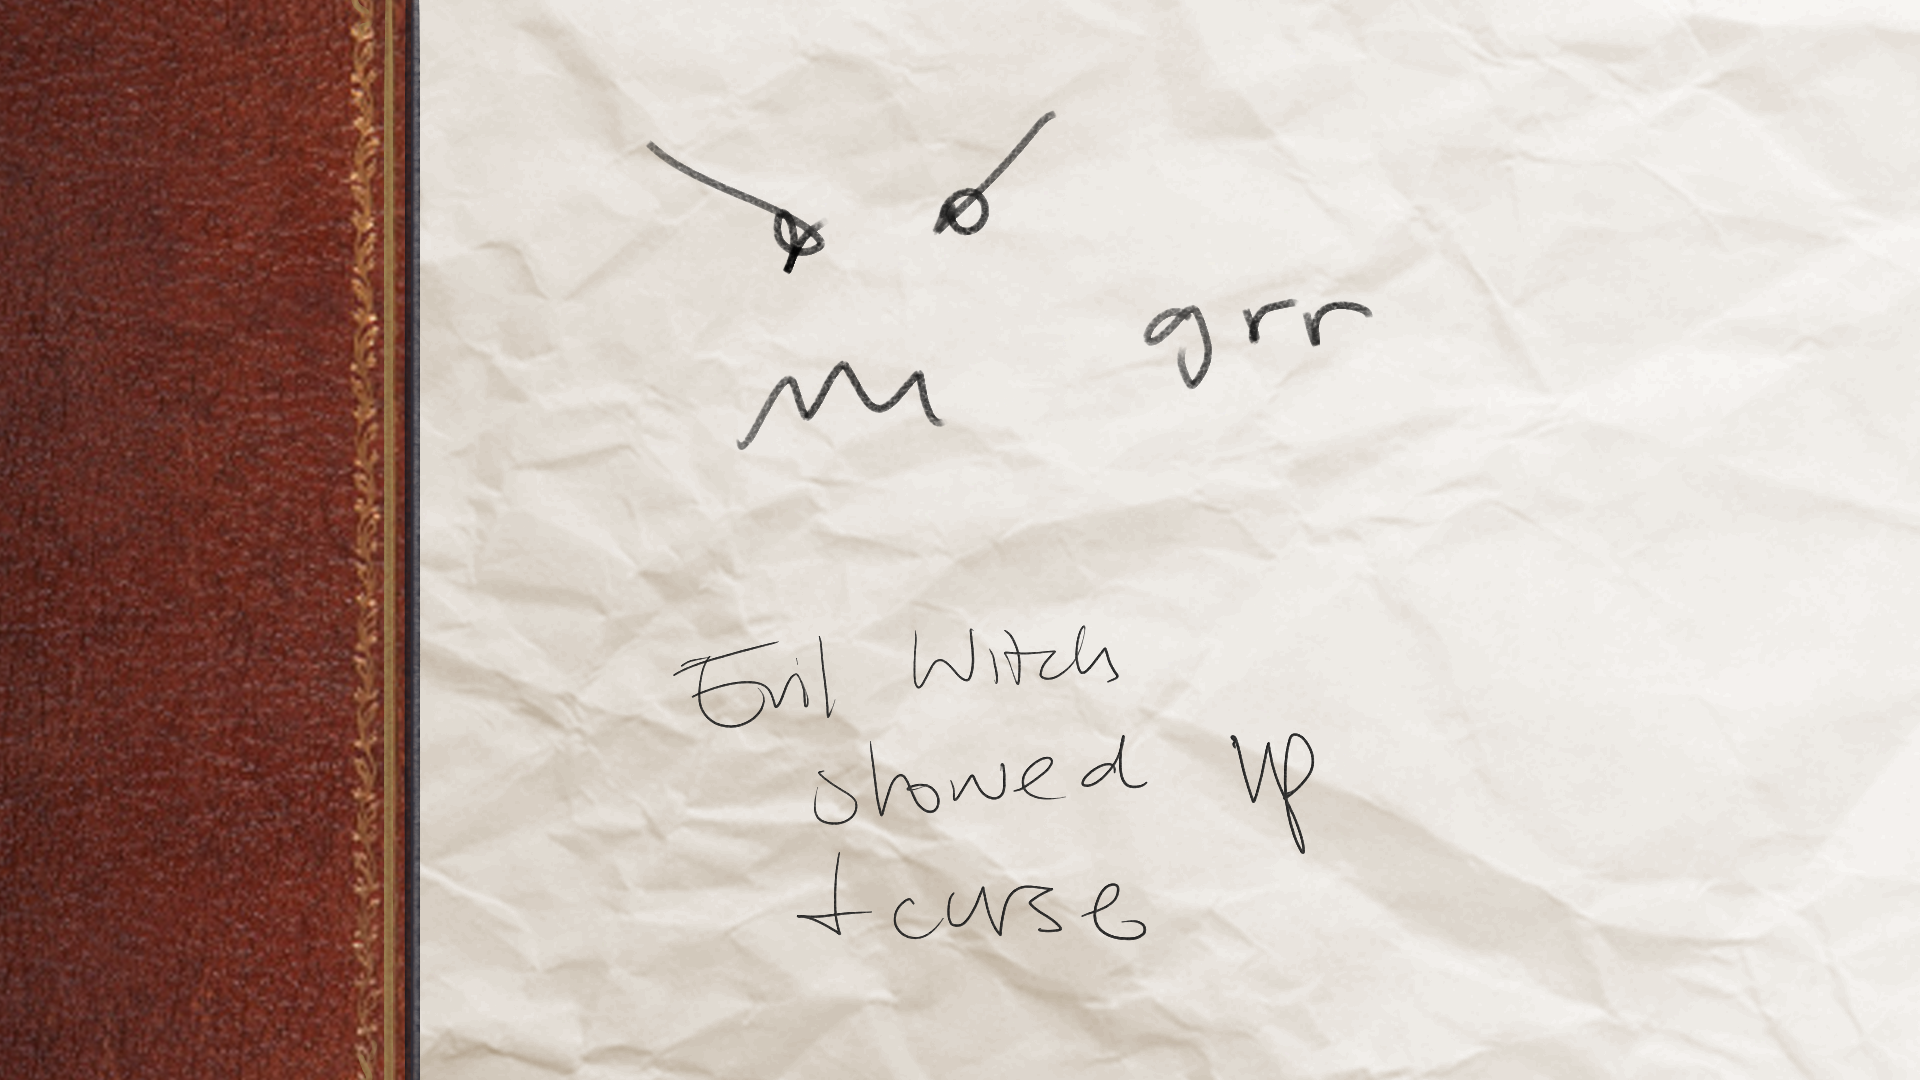 grr
Evil Witch
showed up
+ curse